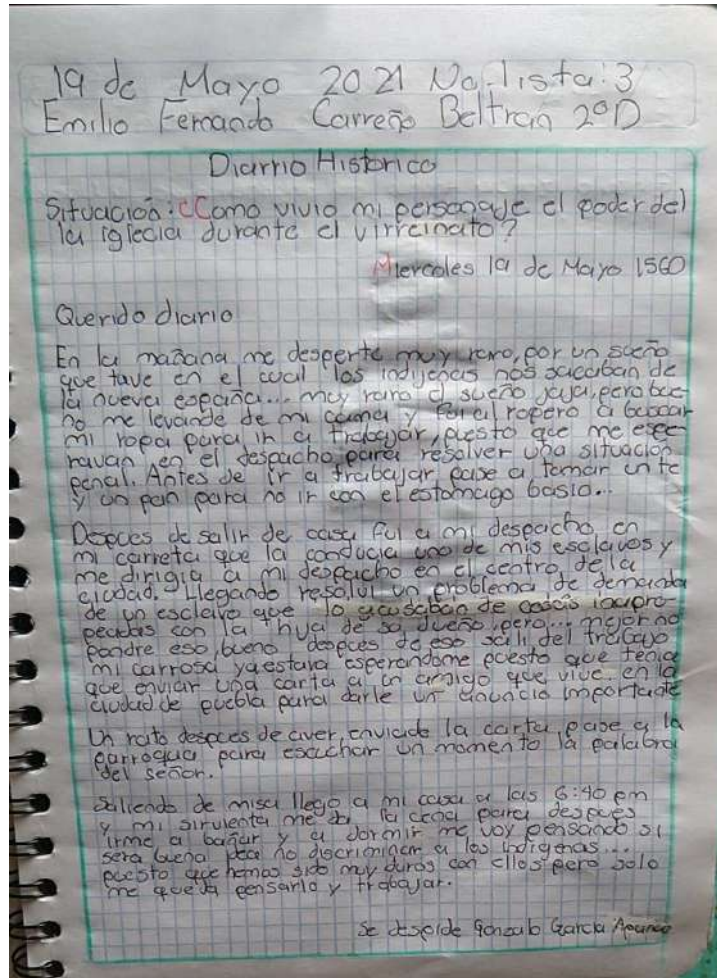 19 de Mayo 2021 No. lista: 3
Emilio Fernando Carreño Beltran 2°D
Diarrio Historico
Situación: ¿Como vivio mi personaje el poder del
la iglecia durante el virreinato?
Miercoles 19 de Mayo 1560
Querido diario
En la mañana me desperte muy raro, por un sueño
que tuve en el cual los indigenas nos sacaban de
la nueva españa... muy raro el sueño jaja, pero bue-
no me levande de mi cama y fui al ropero a buscar
mi ropa para ir a trabajar, puesto que me espe-
ravan en el despacho para resolver una situación
penal. Antes de ir a trabajar pase a tomar un te
y un pan para no ir con el estomago basio...
Despues de salir de casa fui a mi despacho en
mi carreta que la conducia uno de mis esclavos y
me dirigia a mi despacho en el centro de la
ciudad. Llegando resolvi un problema de demanda
de un esclavo que lo acusaban de cosas inapro-
peadas con la hija de su dueño, pero... mejor no
pondre eso, bueno despues de eso sali del trabajo
mi carrosa ya estava esperandome puesto que tenia
que enviar una carta a un amigo que vive en la
ciudad de puebla para darle un anuncio importante
Un rato despues de aver enviado la carta, pase a la
parroquia para escuchar un momento la palabra
del señor.
Saliendo de misa llego a mi casa a las 6:40 pm
y mi sirvienta me da la cena para despues
irme a bañar y a dormir me voy pensando si
sera buena idea no discriminar a los indigenas...
puesto que hemos sido muy duros con ellos pero solo
me queda pensarlo y trabajar.
Se despide Gonzalo Garcia